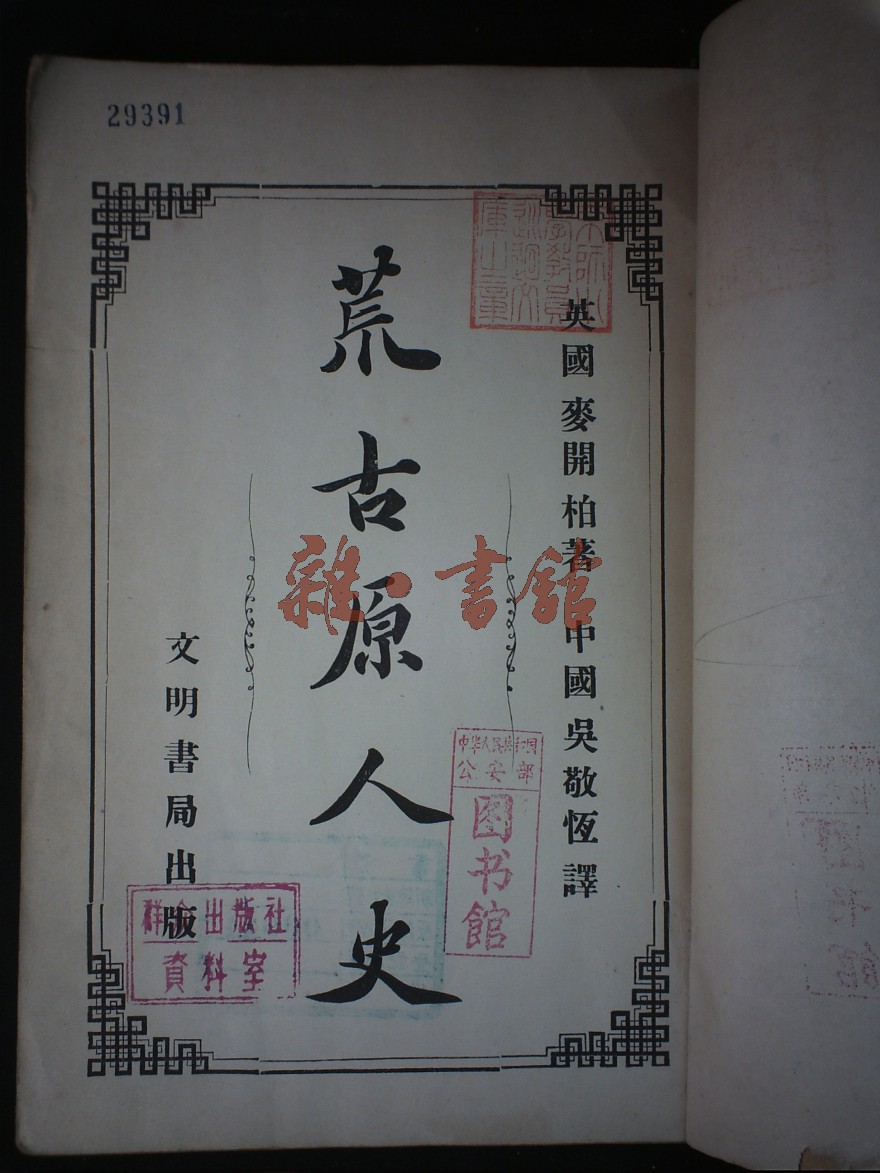 29391
英國麥開柏著 中國吳敬恆譯
荒古原人史
文明書局出版
雜·書館
中华人民共和国
公安部
图书馆
群众出版社
資料室